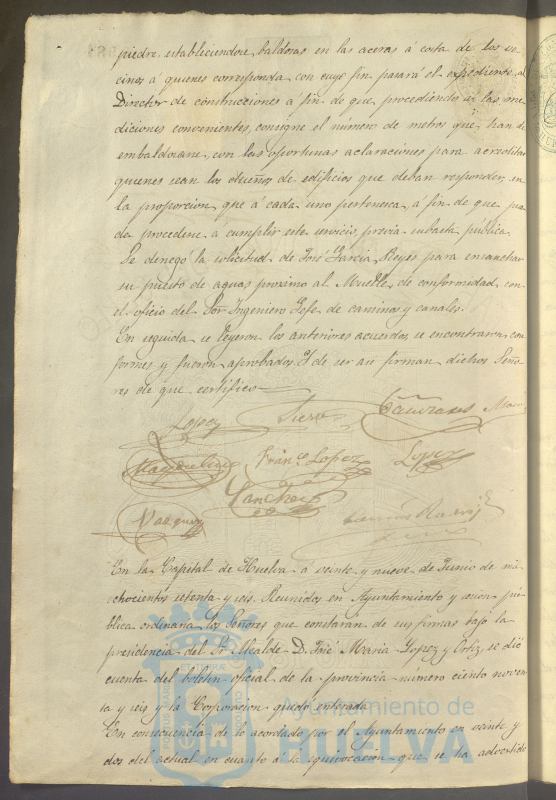 piedre, estableciendose baldosas en las aceras á costa de los ve
cinos á quienes corresponda, con cuyo fin pasará el expediente al
Director de construcciones á fin de que, procediendo á las me
diciones convenientes, consigne el número de metros que han de
embaldosarse, con las oportunas aclaraciones para acreditar
quienes sean los dueños de edificios que deban responder, en
la proporcion que á cada uno pertenezca, á fin de que pue
da procederse á cumplir este servicio previa subasta pública.
Se denegó la solicitud de José Garcia Reyes para ensanchar
su puesto de aguas proximo al Muelle, de conformidad con
el oficio del Sor Ingeniero Gefe de caminos y canales.
En seguida se leyeron los anteriores acuerdos, se encontraron con
formes y fueron aprobados. Y de ser asi firman dichos Seño
res de que certifico
Lopez
Franco Lopez
Lopez
Sanchez
Vazquez
En la Capital de Huelva á veinte y nueve de Junio de mil
ochocientos setenta y seis. Reunidos en Ayuntamiento y sesion pú
blica ordinaria los Señores que constarán de sus firmas bajo la
presidencia del Sr Alcalde D. José Maria Lopez y Ortiz, se dió
cuenta del boletin oficial de la provincia número ciento noven
ta y seis y la Corporacion quedó enterada.
En consecuencia de lo acordado por el Ayuntamiento en veinte y
dos del actual en cuanto á la equivocacion que se ha advertido
Ayuntamiento de
HUELVA